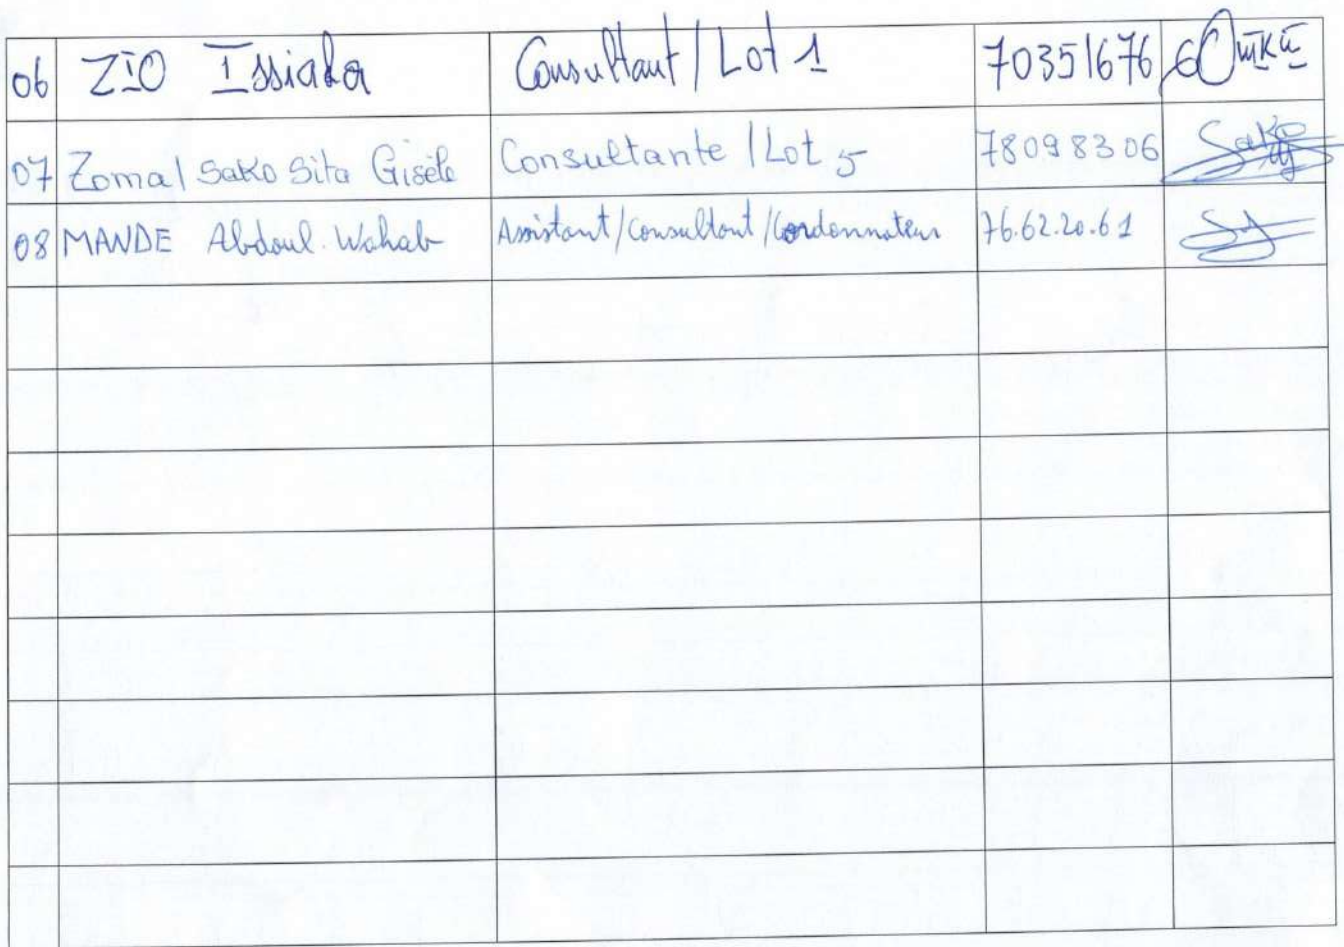 06 ZIO Issiaka Consultant / Lot 1 70351676
07 Zoma / Sako Sita Gisèle Consultante / Lot 5 78098306 Sako
08 MANDE Abdoul. Wahab Assistant/consultant/Cordonnateur 76.62.20.61